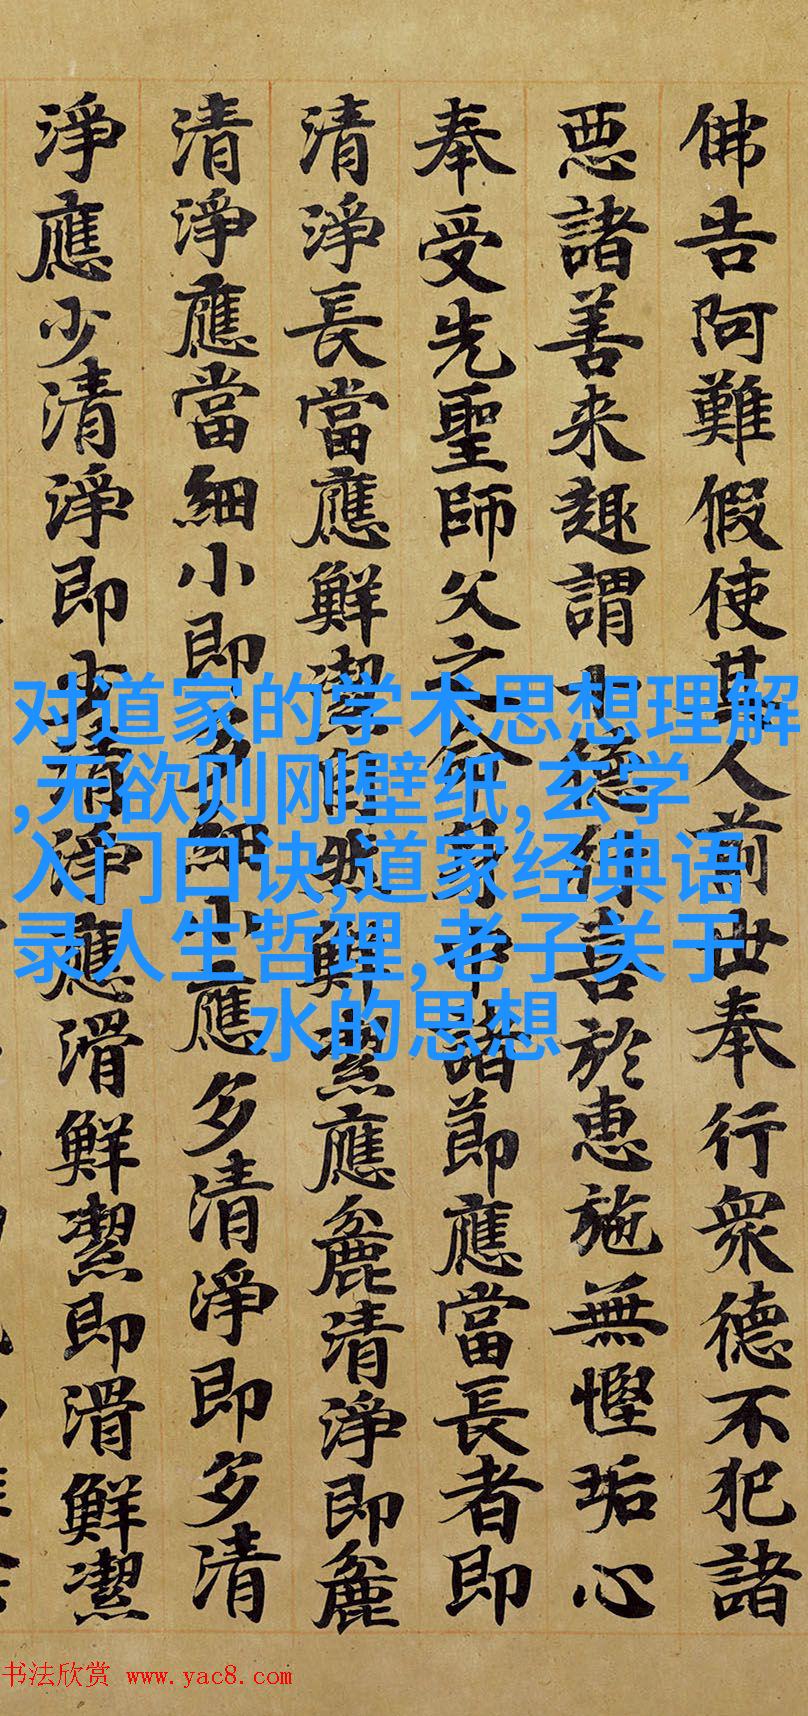 佛告阿難假使其人前世奉行眾德不犯諸
悪諸善来趣謂德喜於恵施無慳垢心
奉受先聖師父之命身中諸節應當長者即
清淨長當應鮮潔自然鮮潔應麁清淨即麁
清淨應當細小即多細小應多清淨即多清
淨應少清淨即少清淨應滑鮮潔即滑鮮潔
对道家的学术思想理解
,无欲则刚壁纸,玄学
入门口诀,道家经典语
录人生哲理,老子关于
水的思想
书法欣赏 www.yac8.com